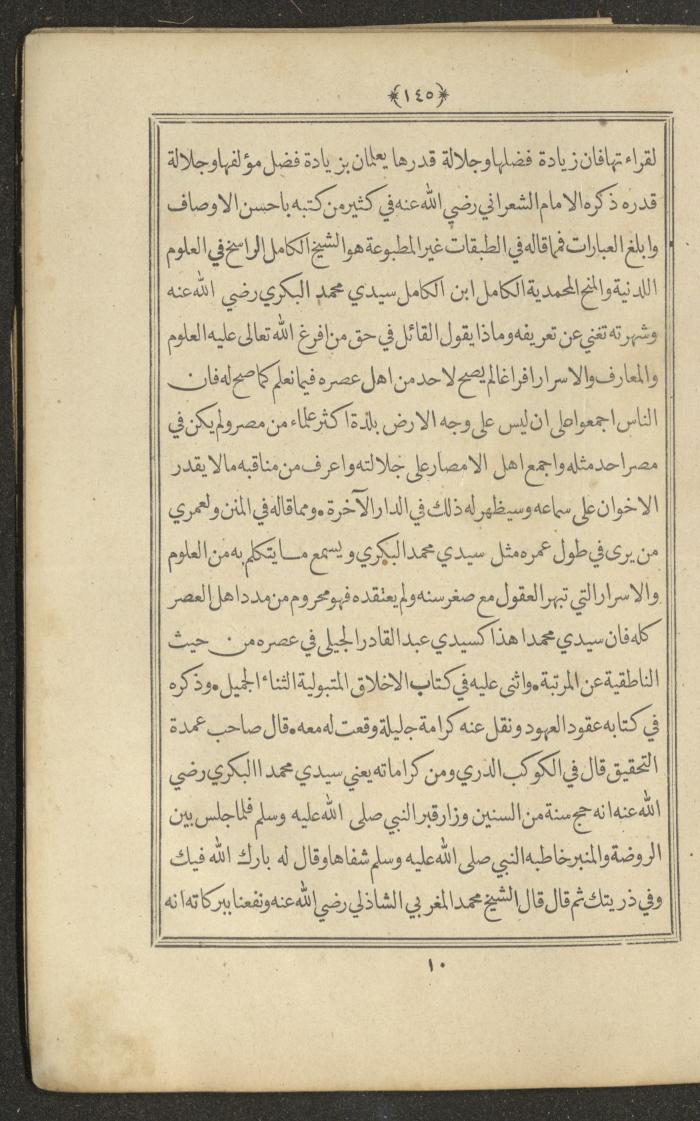 ﴿١٤٥﴾
لقراءتها فان زيادة فضلها وجلالة قدرها يعلمان بزيادة فضل مؤلفها وجلالة
قدره ذكره الامام الشعراني رضي الله عنه في كثير من كتبه باحسن الاوصاف
وابلغ العبارات فما قاله في الطبقات غير المطبوعة هو الشيخ الكامل الراسخ في العلوم
اللدنية والمنح المحمدية الكامل ابن الكامل سيدي محمد البكري رضي الله عنه
وشهرته تغني عن تعريفه وماذا يقول القائل في حق من افرغ الله تعالى عليه العلوم
والمعارف والاسرار افراغا لم يصح لاحد من اهل عصره فيما نعلم كما صح له فان
الناس اجمعوا على ان ليس على وجه الارض بلدة اكثر علماء من مصر ولم يكن في
مصر احد مثله واجمع اهل الامصار على جلالته واعرف من مناقبه ما لا يقدر
الاخوان على سماعه وسيظهر له ذلك في الدار الآخرة . ومما قاله في المنن ولعمري
من يرى في طول عمره مثل سيدي محمد البكري ويسمع ما يتكلم به من العلوم
والاسرار التي تبهر العقول مع صغر سنه ولم يعتقده فهو محروم من مدد اهل العصر
كله فان سيدي محمدا هذا كسيدي عبد القادر الجيلي في عصره من حيث
الناطقية عن المرتبة . واثنى عليه في كتاب الاخلاق المتبولية الثناء الجميل . وذكره
في كتابه عقود العهود ونقل عنه كرامة جليلة وقعت له معه . قال صاحب عمدة
التحقيق قال في الكوكب الدري ومن كراماته يعني سيدي محمد االبكري رضي
الله عنه انه حج سنة من السنين وزار قبر النبي صلى الله عليه وسلم فلما جلس بين
الروضة والمنبر خاطبه النبي صلى الله عليه وسلم شفاها وقال له بارك الله فيك
وفي ذريتك ثم قال قال الشيخ محمد المغربي الشاذلي رضي الله عنه ونفعنا ببركاته انه
١٠